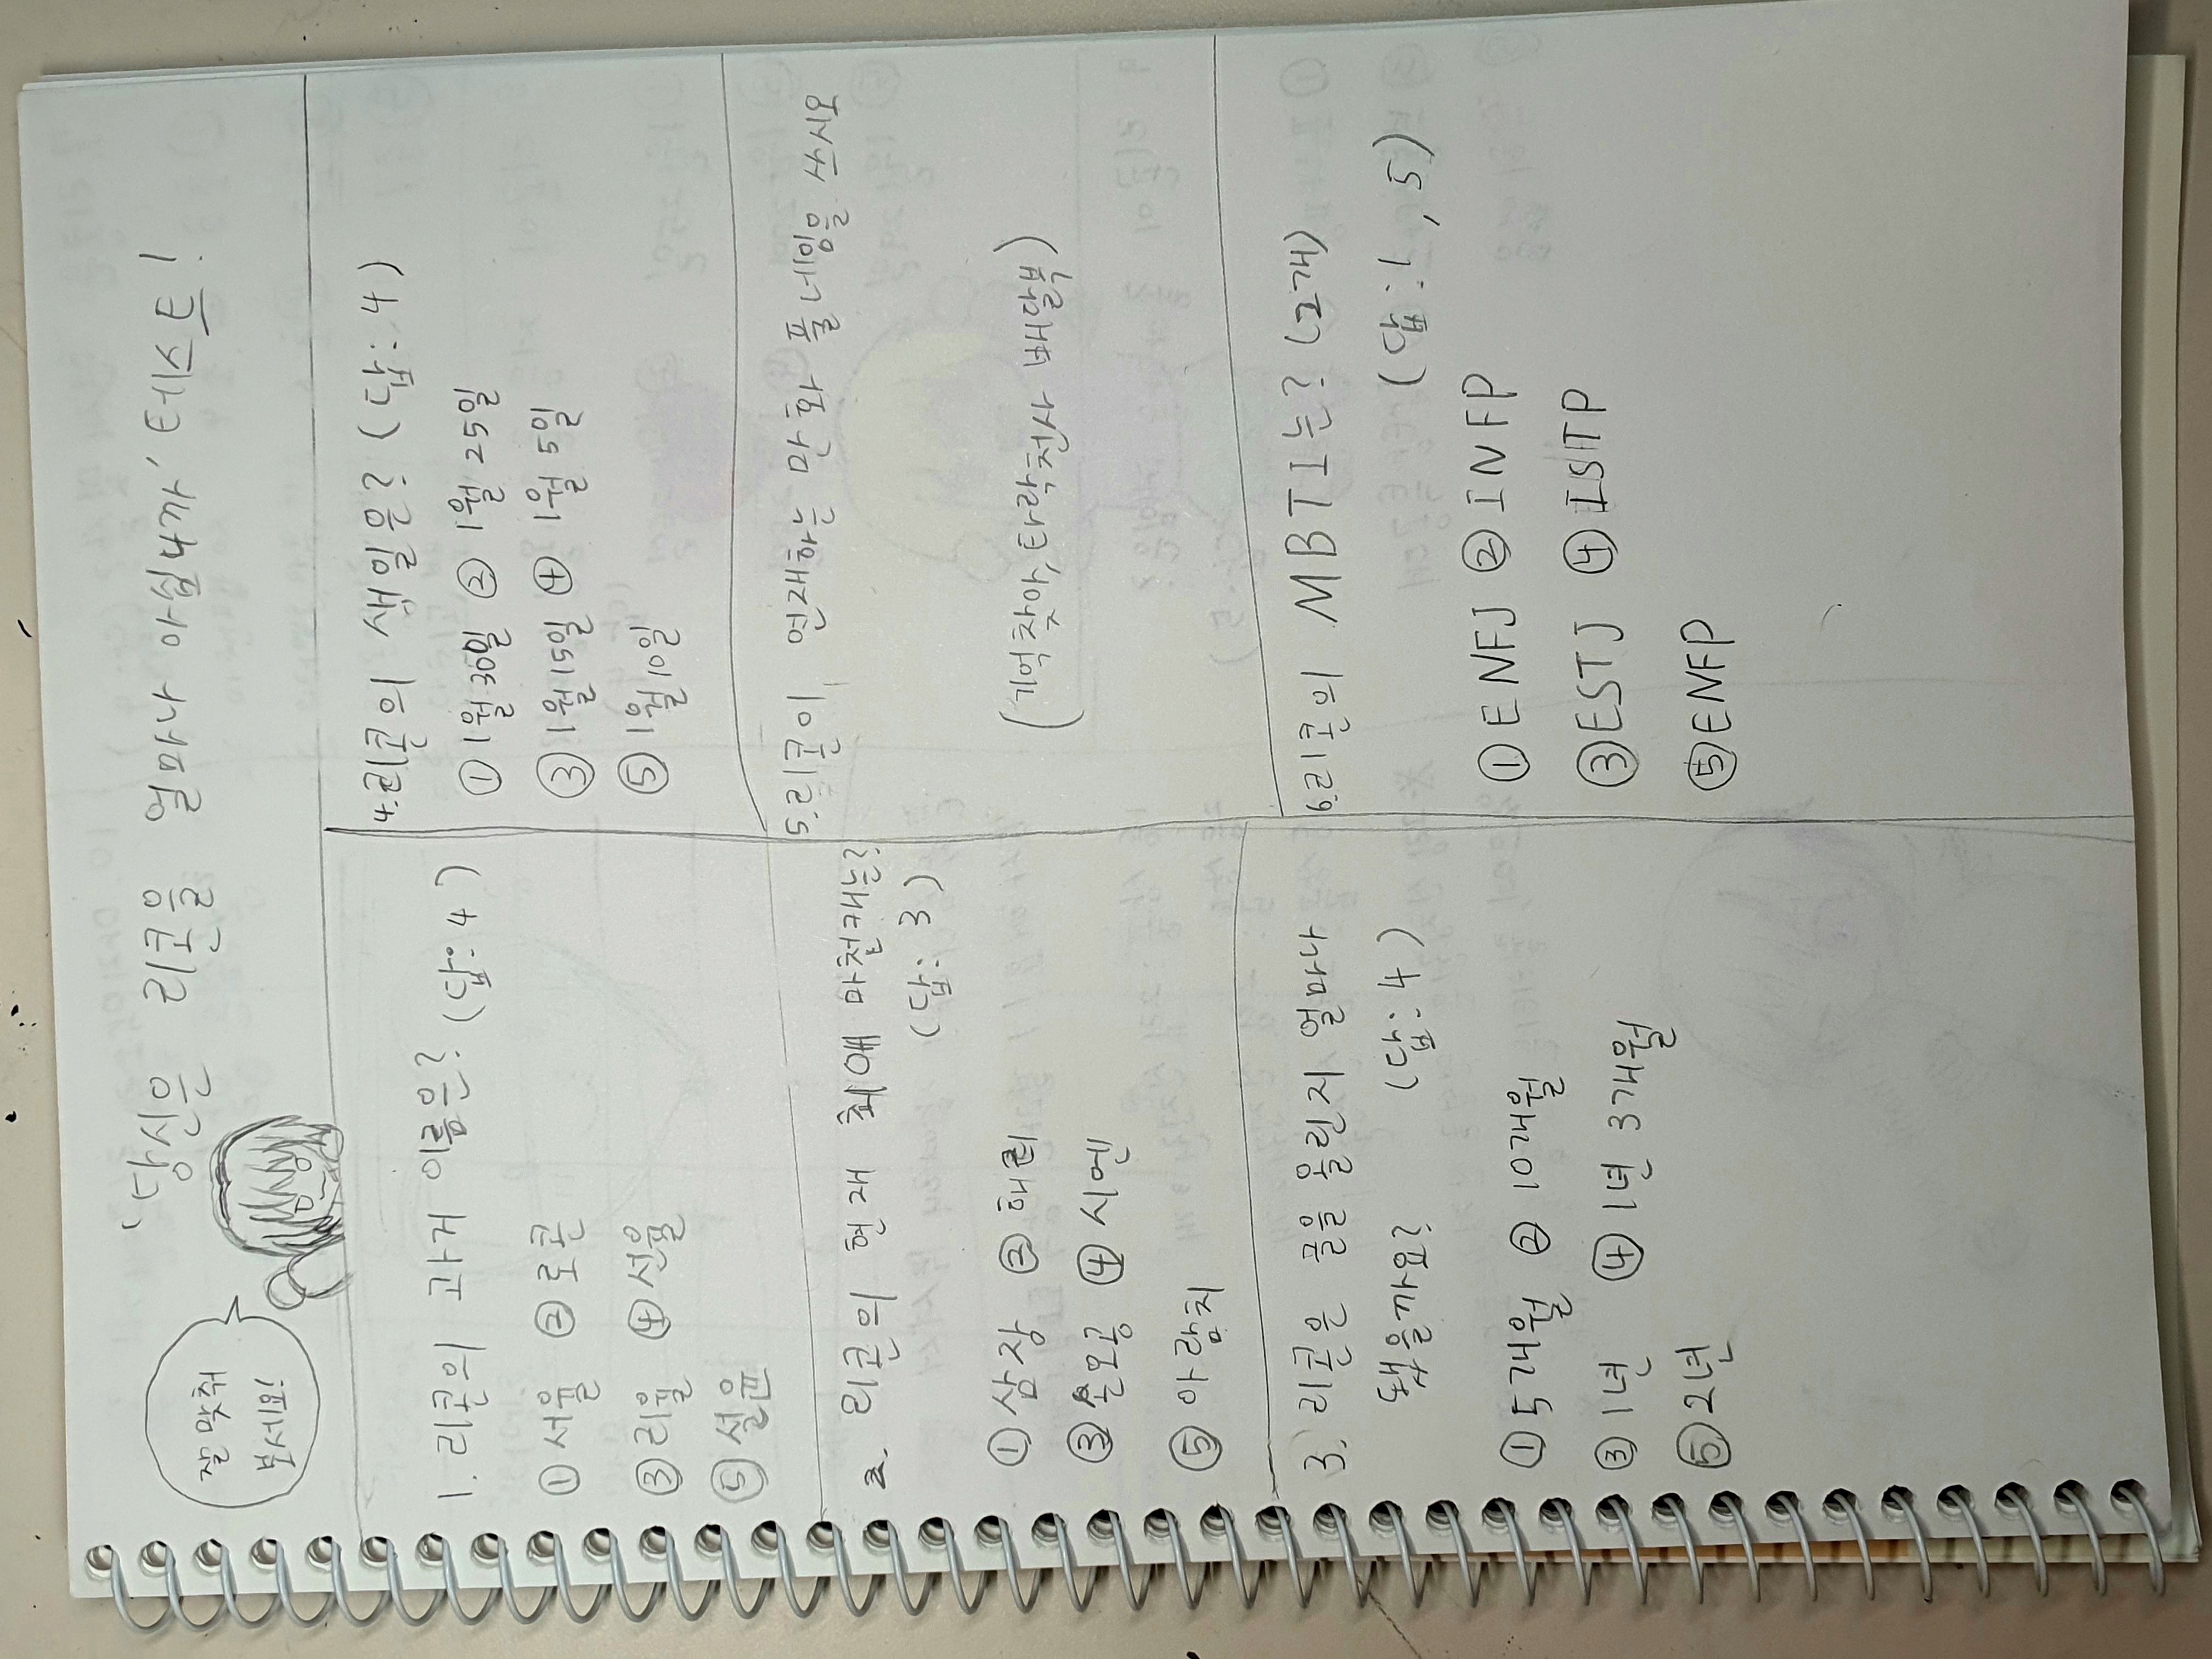 '당신은 리쿤을 얼마나 아십니까' 테스트!
잘 맞춰
보세요!
1. 리쿤의 과거 이름은? (답: 4)
①서율 ②로쿤
③리율 ④선율
⑤설윤
2. 리쿤의 현재 최애 마천캐는?
(답: 3)
①삼장 ②해린
③손오공 ④시엔
⑤아람치
3. 리쿤은 폼을 올린지 얼마나
됐을까요? (답: 4)
①5개월 ②10개월
③1년 ④1년 3개월
⑤2년
4. 리쿤의 생일은? (답: 4)
①1월 30일 ②1월 25일
③1월 15일 ④1월 5일
⑤1월 10일
5. 리쿤이 연재하는 만화 풀네임을 쓰시오
(기억찾아, 타락천사 배달부)
6. 리쿤의 MBTI는? (2개)
(답: 1, 5)
①ENFJ ②INFP
③ESTJ ④ISTP
⑤ENFP